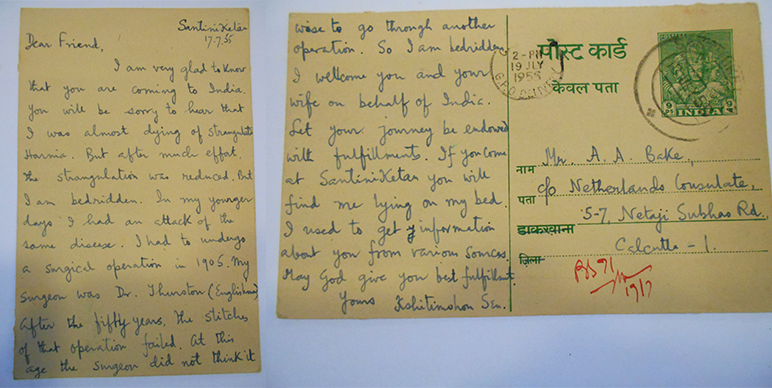 Santiniketan
17.7.55
Dear Friend,
I am very glad to know
that you are coming to India.
You will be sorry to hear that
I was almost dying of strangulate
Harnia. But after much effort,
the strangulation was reduced. But
I am bedridden. In my younger
days I had an attack of the
same disease. I had to undergo
a surgical operation in 1905. My
Surgeon was Dr. Thurston (Englishman)
After the fifty years, the stitches
of that operation failed. At this
age the surgeon did not think it
wise to go through another
operation. So I am bedridden
I welcome you and your
wife on behalf of India.
Let your journey be endowed
with fulfillments. If you come
at Santiniketan you will
find me lying on my bed.
I used to get information
about you from various sources.
May God give you best fulfillment
Yours Kshitimohon Sen.
पोस्ट कार्ड
केवल पता
2-PM
19 JLY
1955
G.P.O.
INDIA
नाम Mr. A. A. Bake,
पता c/o Netherlands Consulate,
5-7, Netaji Subhas Rd.,
डाकखाना
Calcutta-1.
ज़िला
19/7